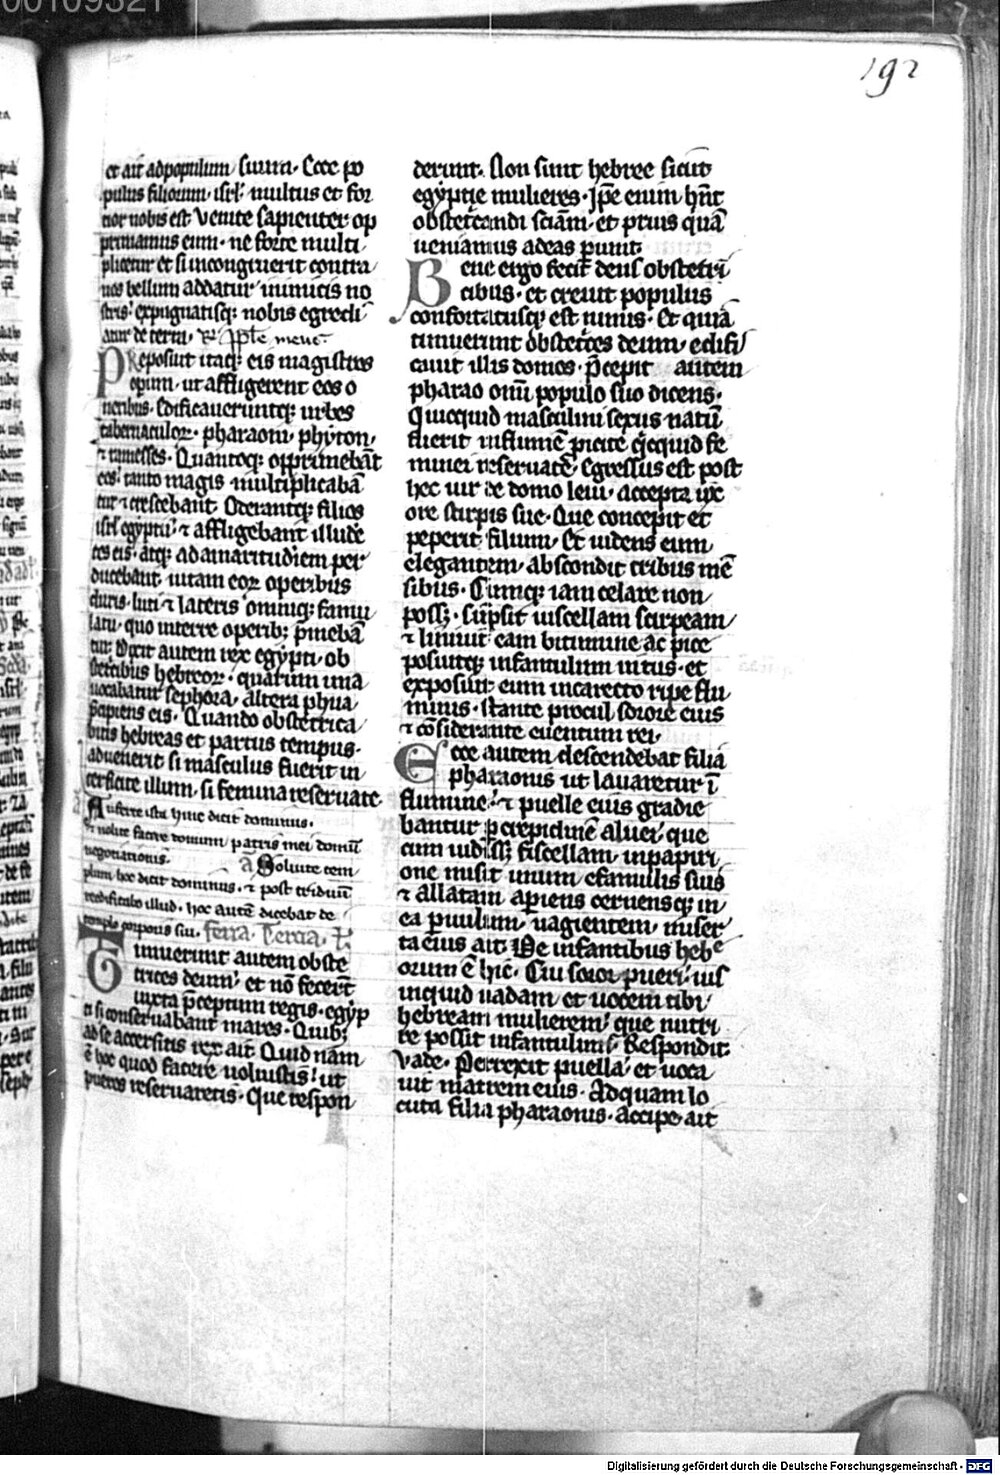 192
et ait ad populum suum. Ecce po
pulus filiorum. isrl'. multus et for
tior nobis est venite sapienter op
primamus eum. ne forte multi
plicetur et si incongruerit contra
nos bellum addatur inimicis no
stris. expugnatisq; nobis egredi
atur de terra.
Preposuit itaq; eis magistros
operum. ut affligerent eos o
neribus. Edificaueruntq; urbes
tabernaculoꝝ. pharaoni. phyton.
⁊ ramesses. Quantoq; opprimebāt
eos. tanto magis multiplicabā
tur ⁊ crescebant. Oderantq; filios
isrl' egyptii. ⁊ affligebant illudē
tes eis. atq; ad amaritudiem per
ducebant. uitam eoꝝ operibus
duris. luti ⁊ lateris omniq; famu
latu. quo in terre operib; p̄mebā
tur. Dixit autem rex egypti. ob
stetricibus hebreoꝝ. quarum una
uocabatur sephora. altera phua.
p̄cipiens eis. Quando obstetrica
bitis hebreas et partus tempus.
aduenerit si masculus fuerit in
terficite illum. si femina reseruate.
Auferte ista hinc dicit dominus.
⁊ nolite facere domum patris mei domū
negotiationis. a Soluite tem
plum hoc dicit dominus. ⁊ post triduū
reedificabo illud. hoc autē dicebat de
templo corporis sui. feria. Tercia.
Timuerunt autem obste
trices deum. et nō fecerūt
iuxta p̄ceptum regis. egyp
ti si conseruabant mares. Quib;
ad se accersitis rex ait. Quid nam
ē hoc quod facere uoluistis. ut
pueros reseruaretis. Que respon
derunt. Non sunt hebree sicut
egyptie mulieres. Ip̄e enim hn̄t
obstetcandi sciām. et prius quā
ueniamus ad eas parīunt.
Bene ergo fecit deus obstetri
cibus. et creuit populus
confortatusq; est nimis. Et quia
timuerunt obstetces deum. edifi
cauit illis domos. p̄cepit autem
pharao omī populo suo dicens.
Quicquid masculini sexus natū
fuerit in flumē proicite q̇cquid fe
minei reseruate. Egressus est post
hec uir de domo leui. accepta ux
ore stirpis sue. Que concepit et
peperit filium. Et uidens eum
elegantem. abscondit tribus mē
sibus. Cumq; iam celare non
poss;. sūpsit uiscellam scirpeam
⁊ liniuit eam bitumine ac pice
posuitq; infantulum intus. et
exposuit eum in carecto ripe flu
minis. stante procul sorore eius
⁊ cōsiderante euentum rei.
Ecce autem descendebat filia
pharaonis ut lauaretur ī
flumine. ⁊ puelle eius gradie
bantur ꝑ crepidinē aluei. que
cum uidiss; fiscellam in papiri
one misit unam e famulis suis
⁊ allatam aperiens cernensq; in
ea puulum. uagientem. miser
ta eius ait. De infantibus hebe
orum ē hic. Cui soror pueri. uis
inquid uadam et uocem tibi
hebream mulierem. que nutri
re possit infantulum. Respondit.
Vade. Perrexit puella. et uoca
uit matrem eius. Ad quam lo
cuta filia pharaonis. accipe ait
Digitalisierung gefördert durch die Deutsche Forschungsgemeinschaft - DFG